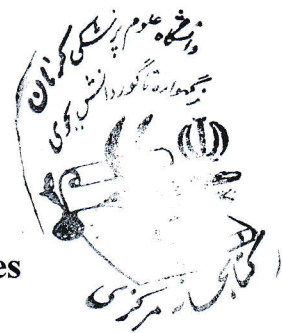 دانشگاه علوم پزشکی کرمان
ز گهواره تا گور دانش بجوی
کتابخانه مرکزی
es